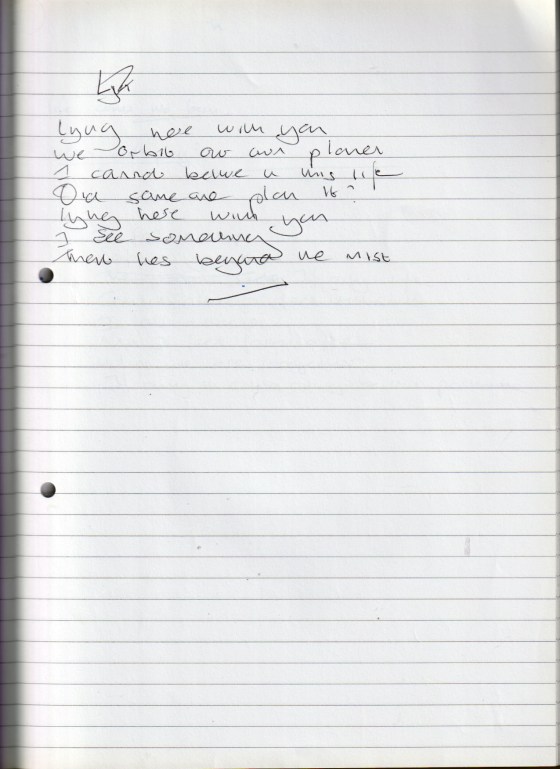 Lying here with you
We orbit our own planet
I cannot believe in this life
Did someone plan it?
Lying here with you
I see something
That lies beyond the mist